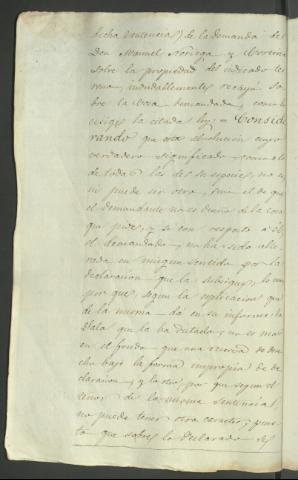 dicha sentencia) de la demanda del
Don Manuel Noriega y
sobre la propiedad del indicado te
rreno, indudablemente recayó so
bre la cosa demandada, como lo
exige la citada ley; = Conside
rando que esta absolución cuyo
verdadero significado, como el
de todas las de su especie, no es
ni puede ser otro, sino el de que
el demandante no es dueño de la cosa
que pide, y si con respeto a él
el demandado, no ha sido alte
rada en ningun sentido por la
declaracion que la subsigue, lo uno
por que, segun la esplicacion que
de la misma da en su informe la
Sala que la ha dictado, no es mas
en el fondo que una reserva de dere
cho bajo la forma impropia de de
claracion, y lo otro, por que segun el
tenor de la misma sentencia
no puede tener otro caracter, pues
to que sobre lo declarado